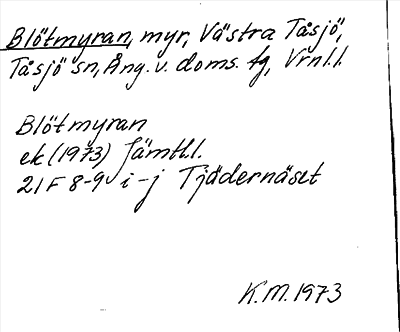 Blötmyran, myr, Västra Tåsjö,
Tåsjö sn, Ång. v. doms. tg, Vrnl.l.
Blötmyran
ek (1973) Jämtl.l.
21F 8-9 i-j Tjädernäset
K.M. 1973